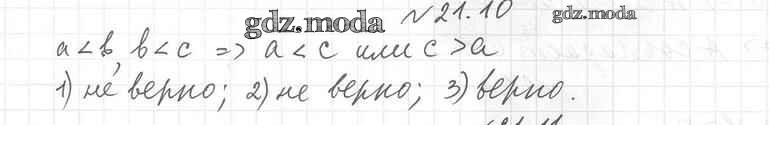 gdz.moda № 21.10 gdz.moda
a < b, b < c => a < c или c > a
1) не верно; 2) не верно; 3) верно.